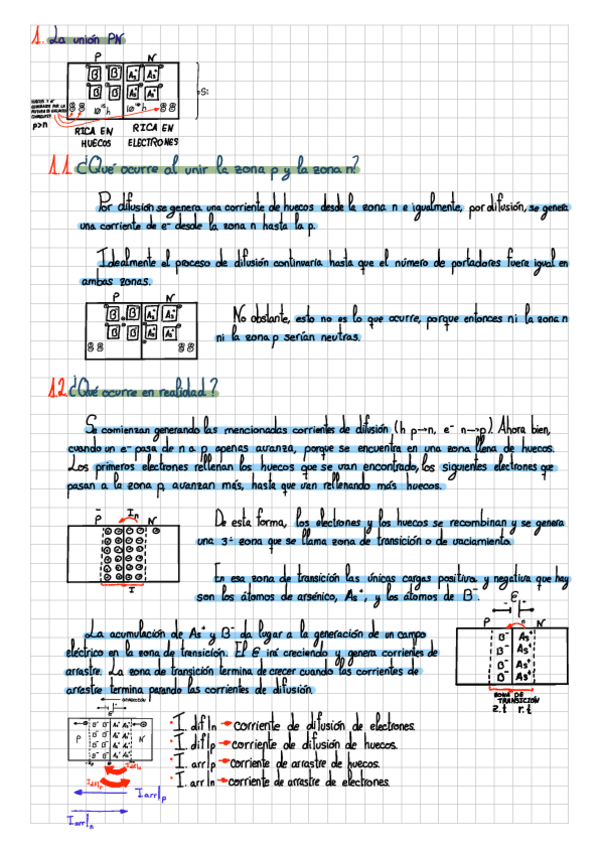 1. La unión PN
P N
B B As As
B B As As
Si
p>n
10¹⁵ h 10¹⁵ h
RICA EN HUECOS
RICA EN ELECTRONES
1.1 ¿Qué ocurre al unir la zona p y la zona n?
Por difusión se genera una corriente de huecos desde la zona n e igualmente, por difusión, se genera
una corriente de e- desde la zona n hasta la p.
Idealmente el proceso de difusión continuaría hasta que el número de portadores fuera igual en
ambas zonas.
P N
B B As As
B B As As
No obstante, esto no es lo que ocurre, porque entonces ni la zona n
ni la zona p serían neutras.
1.2 ¿Qué ocurre en realidad?
Se comienzan generando las mencionadas corrientes de difusión (h p→n, e- n→p). Ahora bien,
cuando un e- pasa de n a p apenas avanza, porque se encuentra en una zona llena de huecos.
Los primeros electrones rellenan los huecos que se van encontrado, los siguientes electrones que
pasan a la zona p, avanzan más, hasta que van rellenando más huecos.
P In N
I
De esta forma, los electrones y los huecos se recombinan y se genera
una 3ª zona que se llama zona de transición o de vaciamiento.
En esa zona de transición las únicas cargas positiva y negativa que hay
son los átomos de arsénico, As⁺, y los átomos de B⁻.
La acumulación de As⁺ y B⁻ da lugar a la generación de un campo
eléctrico en la zona de transición. El E irá creciendo y genera corrientes de
arrastre. La zona de transición termina de crecer cuando las corrientes de
arrastre termina parando las corrientes de difusión.
P N
B⁻ As⁺
B⁻ As⁺
B⁻ As⁺
B⁻ As⁺
ZONA DE TRANSICIÓN
z.t r.t
P N
I arr|p
I arr|n
· I. dif|n → corriente de difusión de electrones.
· I. dif|p → corriente de difusión de huecos.
· I. arr|p → corriente de arrastre de huecos.
· I. arr|n → corriente de arrastre de electrones.